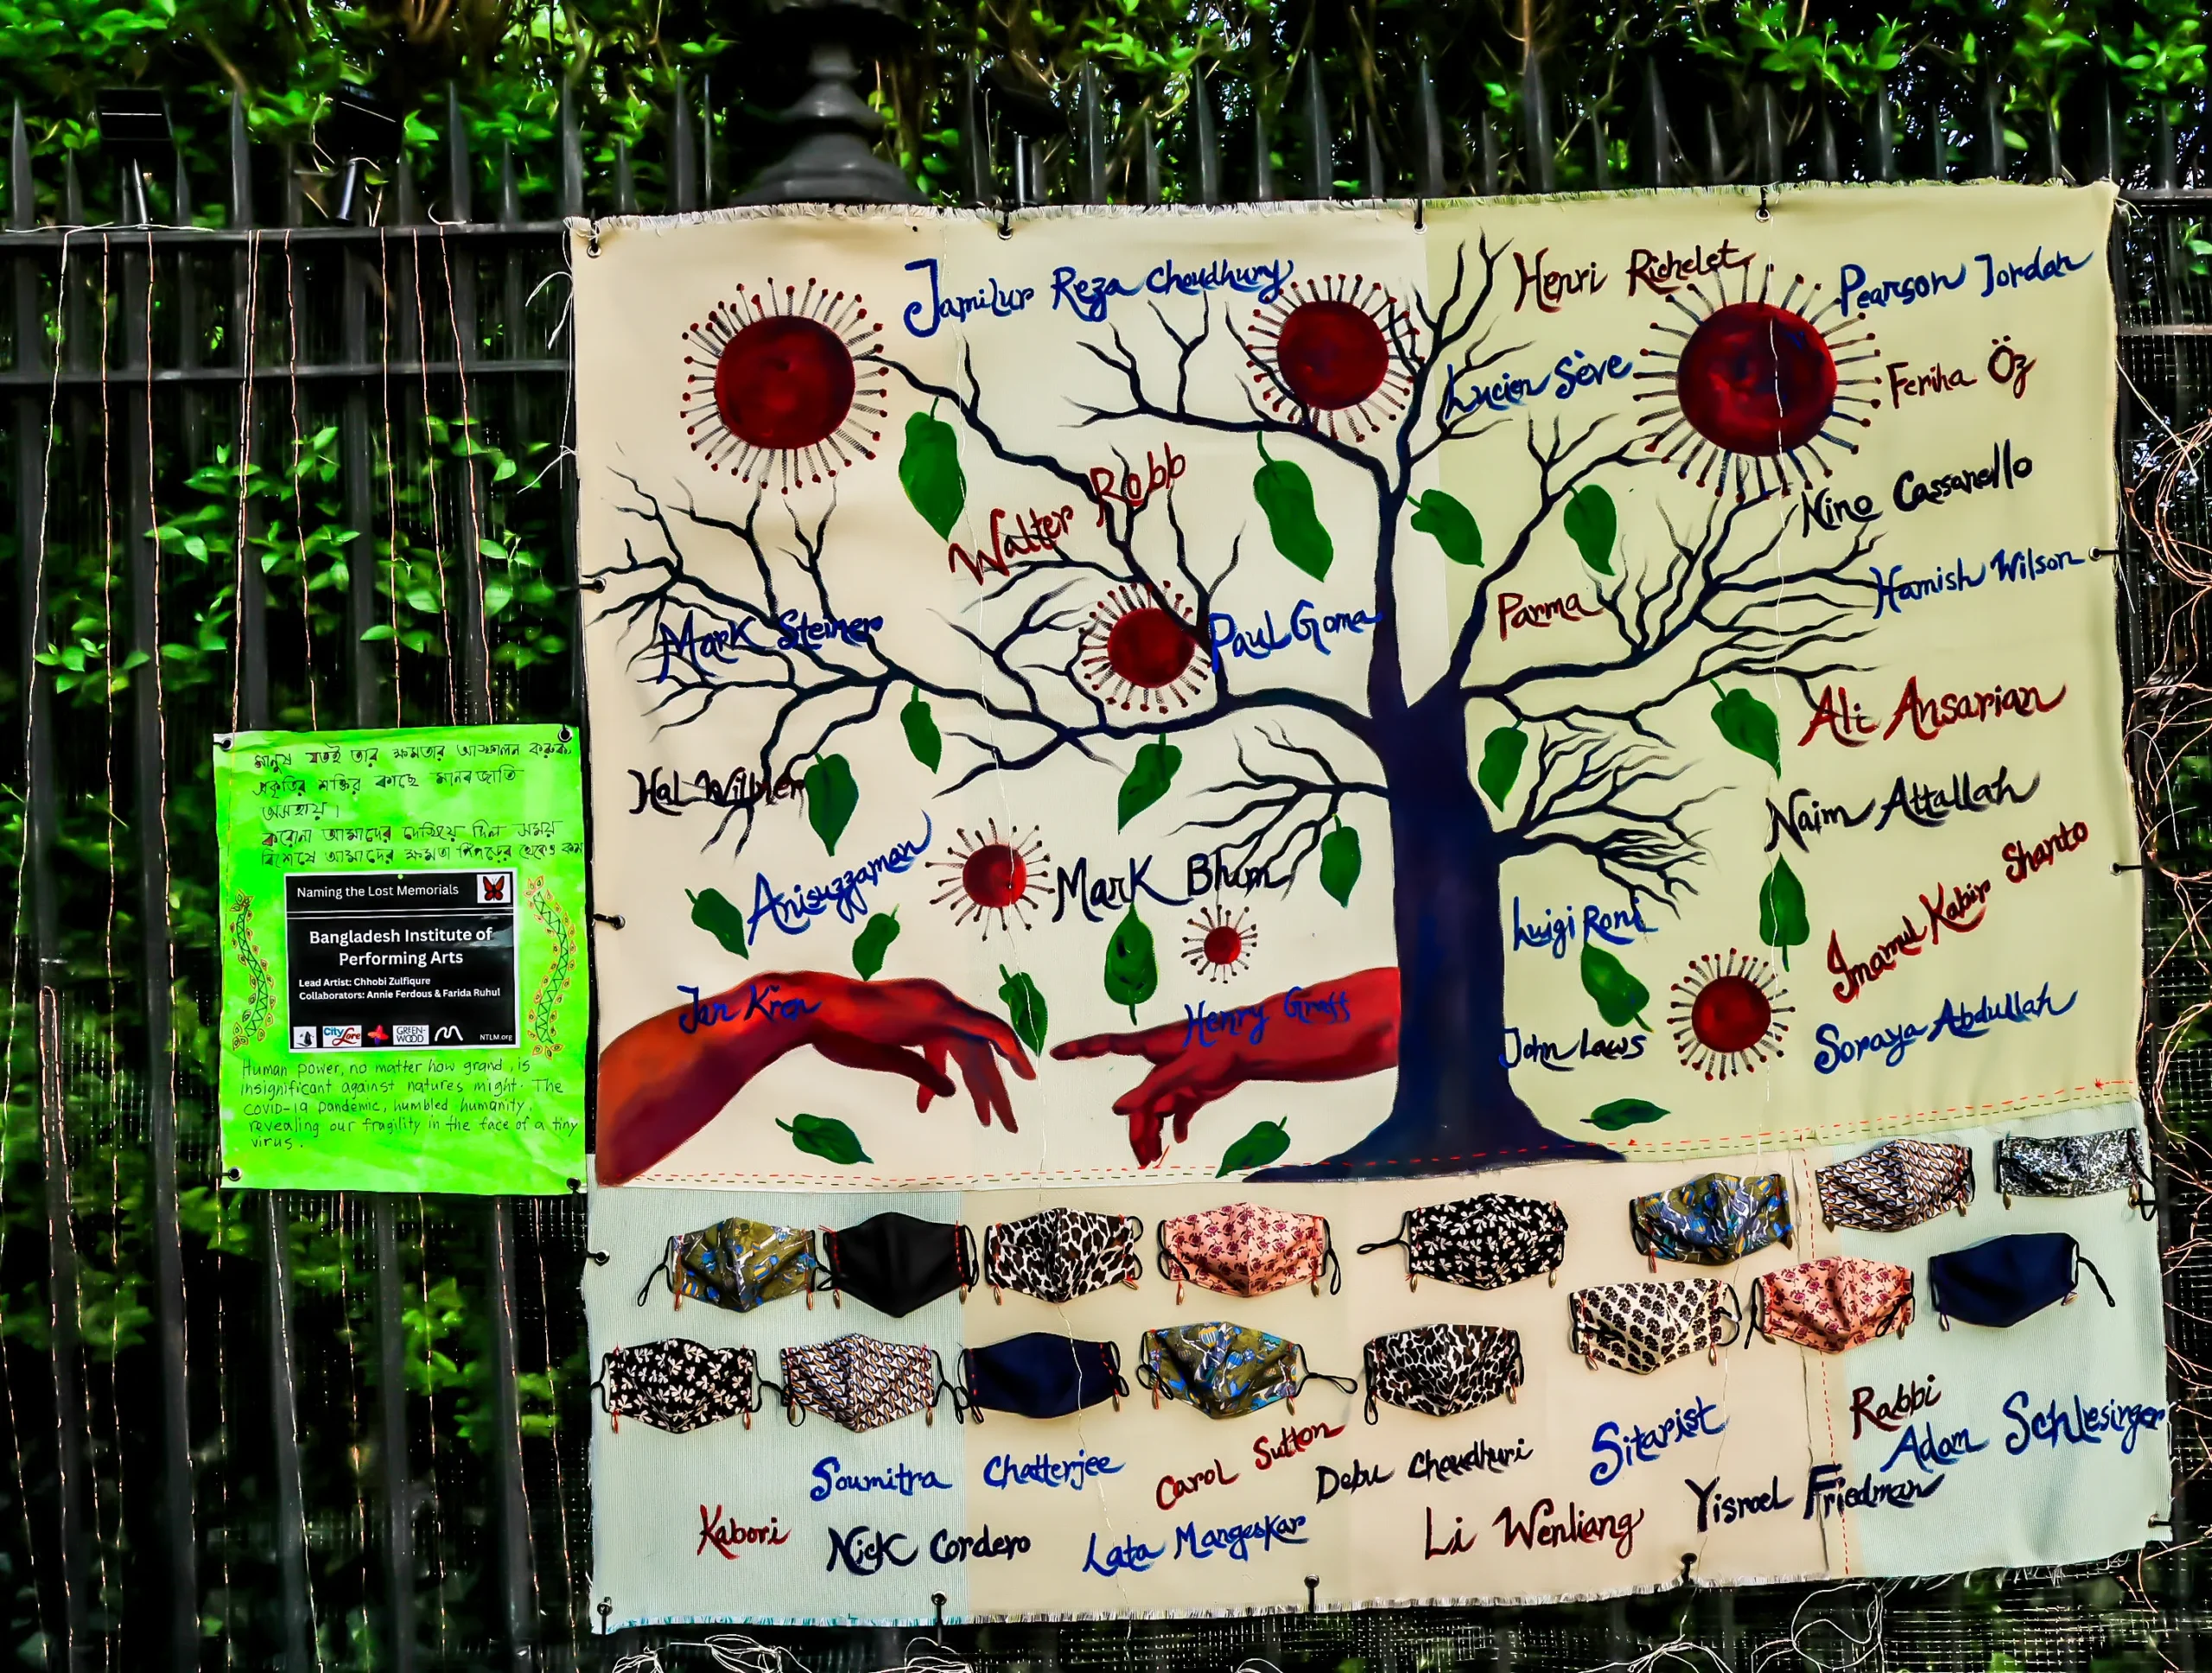 মানুষ যতই তার ক্ষমতার আস্ফালন করুক,
প্রকৃতির শক্তির কাছে মানব জাতি
অসহায়।
করোনা আমাদের দেখিয়ে দিল সময়
বিশেষে আমাদের ক্ষমতা পিঁপড়ের থেকেও কম
Naming the Lost Memorials
Bangladesh Institute of
Performing Arts
Lead Artist: Chhobi Zulfiqure
Collaborators: Annie Ferdous & Farida Ruhul
City Lore
GREEN-
WOOD
NTLM.org
Human power, no matter how grand, is
insignificant against natures might. The
COVID-19 pandemic, humbled humanity,
revealing our fragility in the face of a tiny
virus.
Jamilur Reza Choudhury
Henri Richelet
Pearson Jordan
Lucien Sève
Feriha Öz
Walter Robb
Nino Cassanello
Hamish Wilson
Mark Steiner
Paul Goma
Parma
Ali Ansarian
Hal Willner
Naim Attallah
Anisuzzaman
Mark Blum
Luigi Roni
Imamul Kabir Shanto
Jan Kren
Henry Graff
John Laws
Soraya Abdullah
Rabbi
Adam Schlesinger
Soumitra Chatterjee
Carol Sutton
Debu Chaudhuri
Sitarist
Yisroel Friedman
Kabori
Nick Cordero
Lata Mangeskar
Li Wenliang